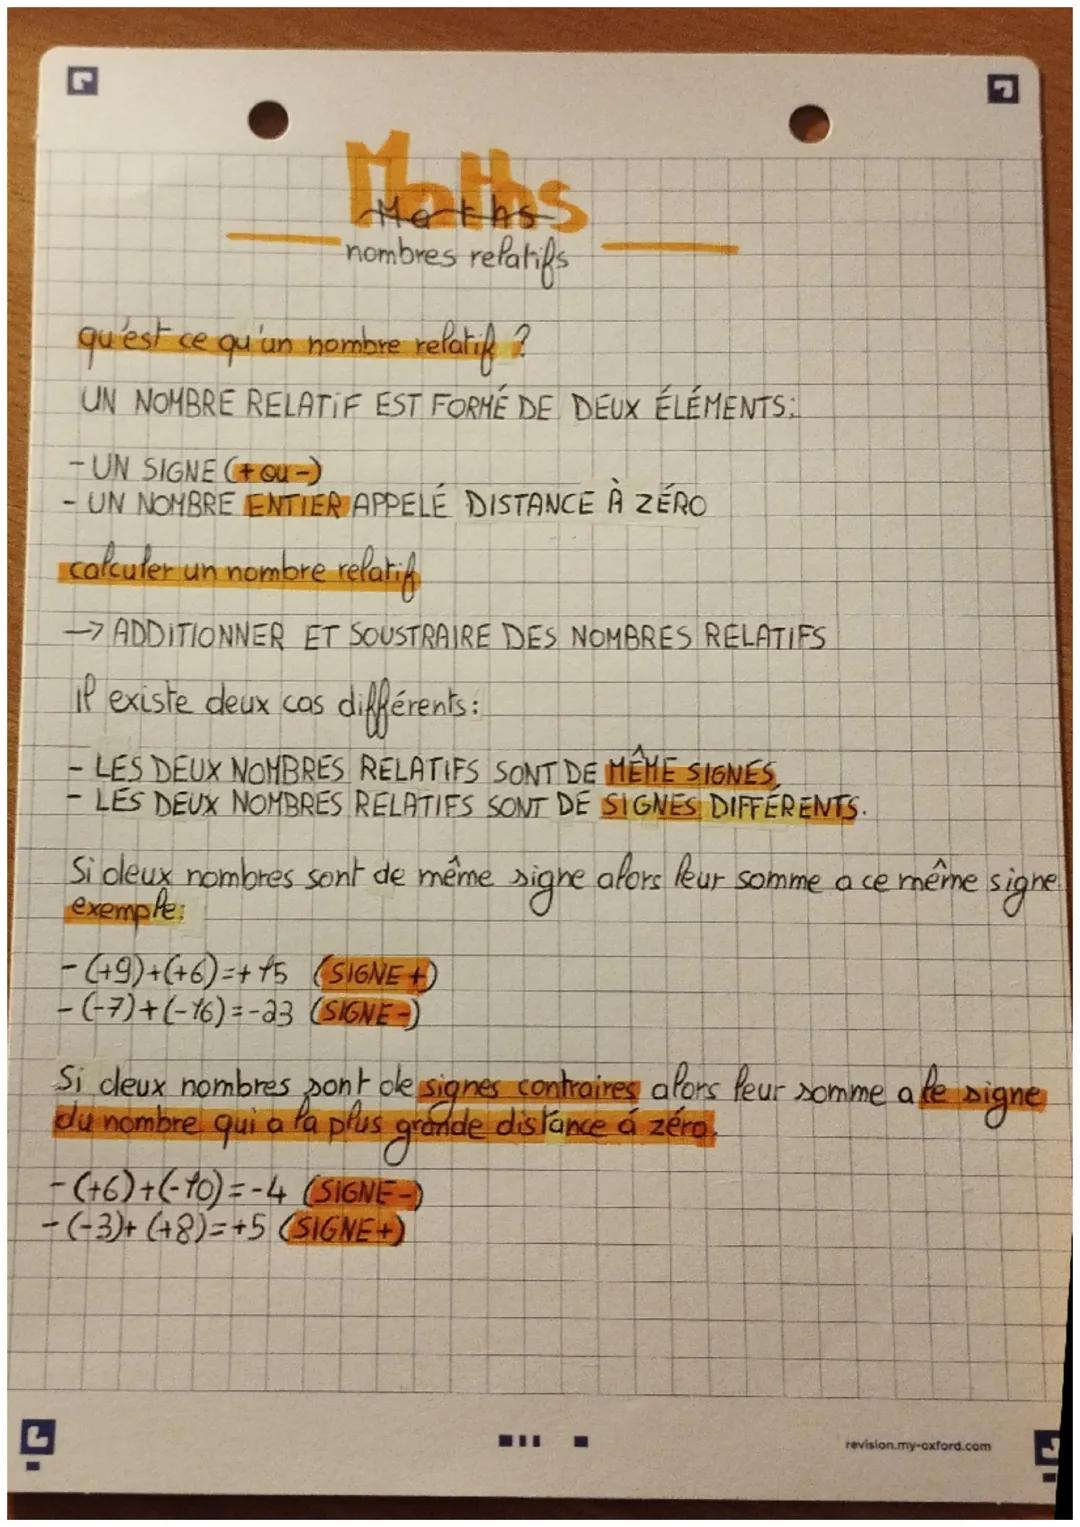 Maths
Maths
nombres relatifs
qu'est ce qu'un nombre relatif ?
UN NOMBRE RELATIF EST FORMÉ DE DEUX ÉLÉMENTS:
- UN SIGNE (+ ou -)
- UN NOMBRE ENTIER APPELÉ DISTANCE À ZÉRO
calculer un nombre relatif
→ ADDITIONNER ET SOUSTRAIRE DES NOMBRES RELATIFS
il existe deux cas différents:
- LES DEUX NOMBRES RELATIFS SONT DE MÊME SIGNES
- LES DEUX NOMBRES RELATIFS SONT DE SIGNES DIFFÉRENTS.
Si deux nombres sont de même signe alors leur somme a ce même signe
exemple:
- (+9)+(+6)=+15 (SIGNE +)
- (-7)+(-16)=-23 (SIGNE -)
Si deux nombres sont de signes contraires alors leur somme a le signe
du nombre qui a la plus grande distance á zéro.
- (+6)+(-10)=-4 (SIGNE -)
- (-3)+(+8)=+5 (SIGNE +)
revision.my-oxford.com